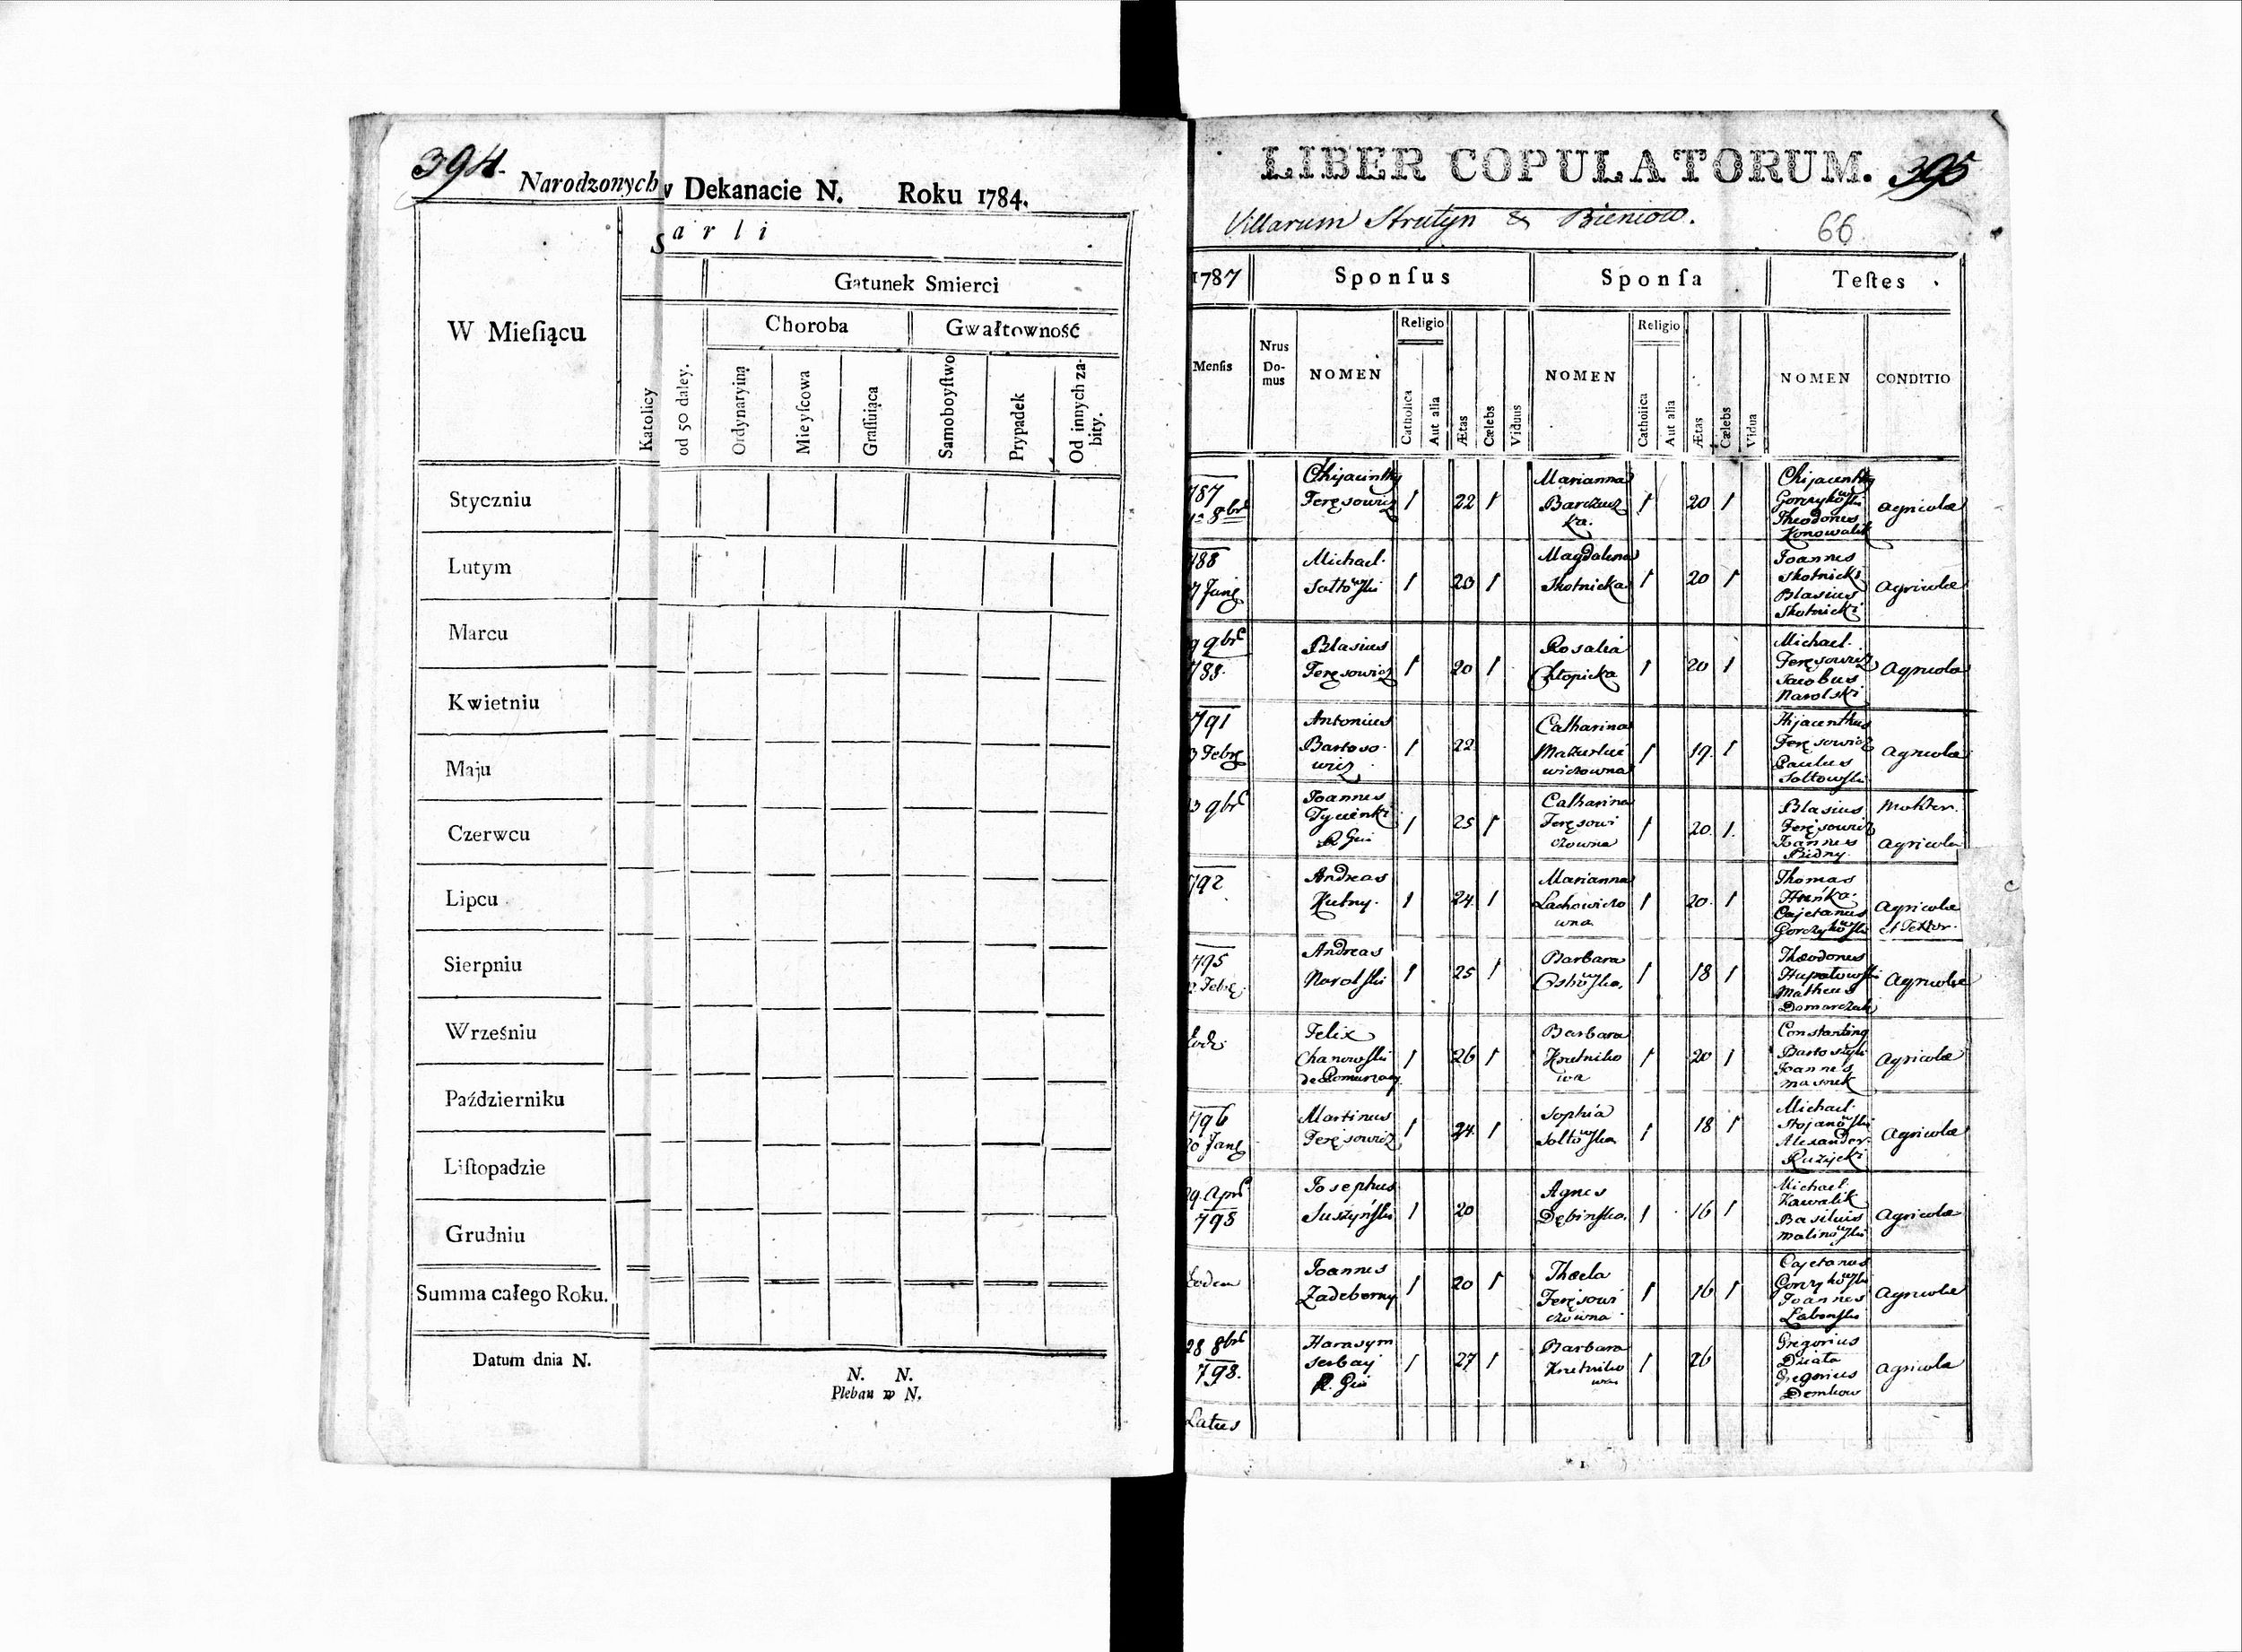 394.
Narodzonych w Dekanacie N. Roku 1784.
Sarli
W Mieſiącu
Gatunek Smierci
Choroba
Gwałtowność
Katolicy
od 50 daley.
Ordynaryiną
Mieyſcowa
Graſſuiąca
Samoboyſtwo
Prypadek
Od innych za-
bity.
Styczniu
Lutym
Marcu
Kwietniu
Maju
Czerwcu
Lipcu
Sierpniu
Wrześniu
Październiku
Liſtopadzie
Grudniu
Summa całego Roku.
Datum dnia N.
N. N.
Pleban w N.
LIBER COPULATORUM. 395
Villarum Strutyn & Bieniow.
66
1787 Sponſus Sponſa Teſtes
Menſis
Nrus
Do-
mus
NOMEN
Religio
Catholica
Aut alia
Ætas
Cælebs
Viduus
NOMEN
Religio
Catholica
Aut alia
Ætas
Cælebs
Vidua
NOMEN
CONDITIO
787
8bris
Chijacinthy
Teręsowicz
1 22 1
Marianna
Barczucz
ka.
1 20 1
Chijacinthy
Gorzykowski
Theodorus
Konowalik
agricolæ
788
7 Janę
Michael.
Sołtowski
1 20 1
Magdalena
Skotnicka
1 20 1
Joannes
Skotnicki
Blasius
Skotnicki
Agricolæ
9 9bris
788.
Blasius
Teręsowicz
1 20 1
Rosalia
Chłopicka
1 20 1
Michael.
Teręsowicz
Jacobus
Narolski
Agricolæ
791
3 Febrę
Antonius
Bartoso-
wicz
1 22
Catharina
wiczowna
1 19. 1
Hijacinthus
Teręsowicz
Paulus
Sołtowski
Agricolæ
3 9bris
Joannes
R. Gui
1 25 1
Catharina
Teręsowi
czowna
1 20. 1.
Blasius
Teręsowicz
Joannes
Bidny.
agricola
792
Andreas
Kutny.
1 24. 1
Marianna
Lachowiczo
wna
1 20. 1
Thomas
Hunka.
Cajetanus
Gorczykowski
Agricolæ
et Textor.
795
2 Febrę.
Andreas
Narolski
1 25 1
Barbara
1 18 1
Theodorus
Matheus
Domarczuk
Agricolæ
Felix
Chanowski
de Pomurzany
1 26 1
Barbara
Krutniko
wa
1 20 1
Bartoszyk
Joannes
Masnik
Agricolæ
796
20 Janę
Martinus
Teręsowicz
1 24. 1
Sophia
Sołtowska
1 18 1
Michael.
Stojanowski
Alexander.
Ruzycki
Agricolæ
29. Apris
795
Josephus
Suszyński
1 20
Agnes
Dębinska.
1 16 1
Michael.
Kawalik
Basilius
Malinowski
Agricolæ
Eodem
Joannes
Zadeborny
1 20 1
Thecla
Teręsowi
czowna
1 16 1
Cajetanus
Gorzykowski
Joannes
Łabonski
Agricolæ
28 8bris
798.
Harasym
Serbay
R. Gui
1 27 1
Barbara
Krutniko
wa
1 26
Gregorius
Działa
Gregorius
Demkow
agricola
Latus